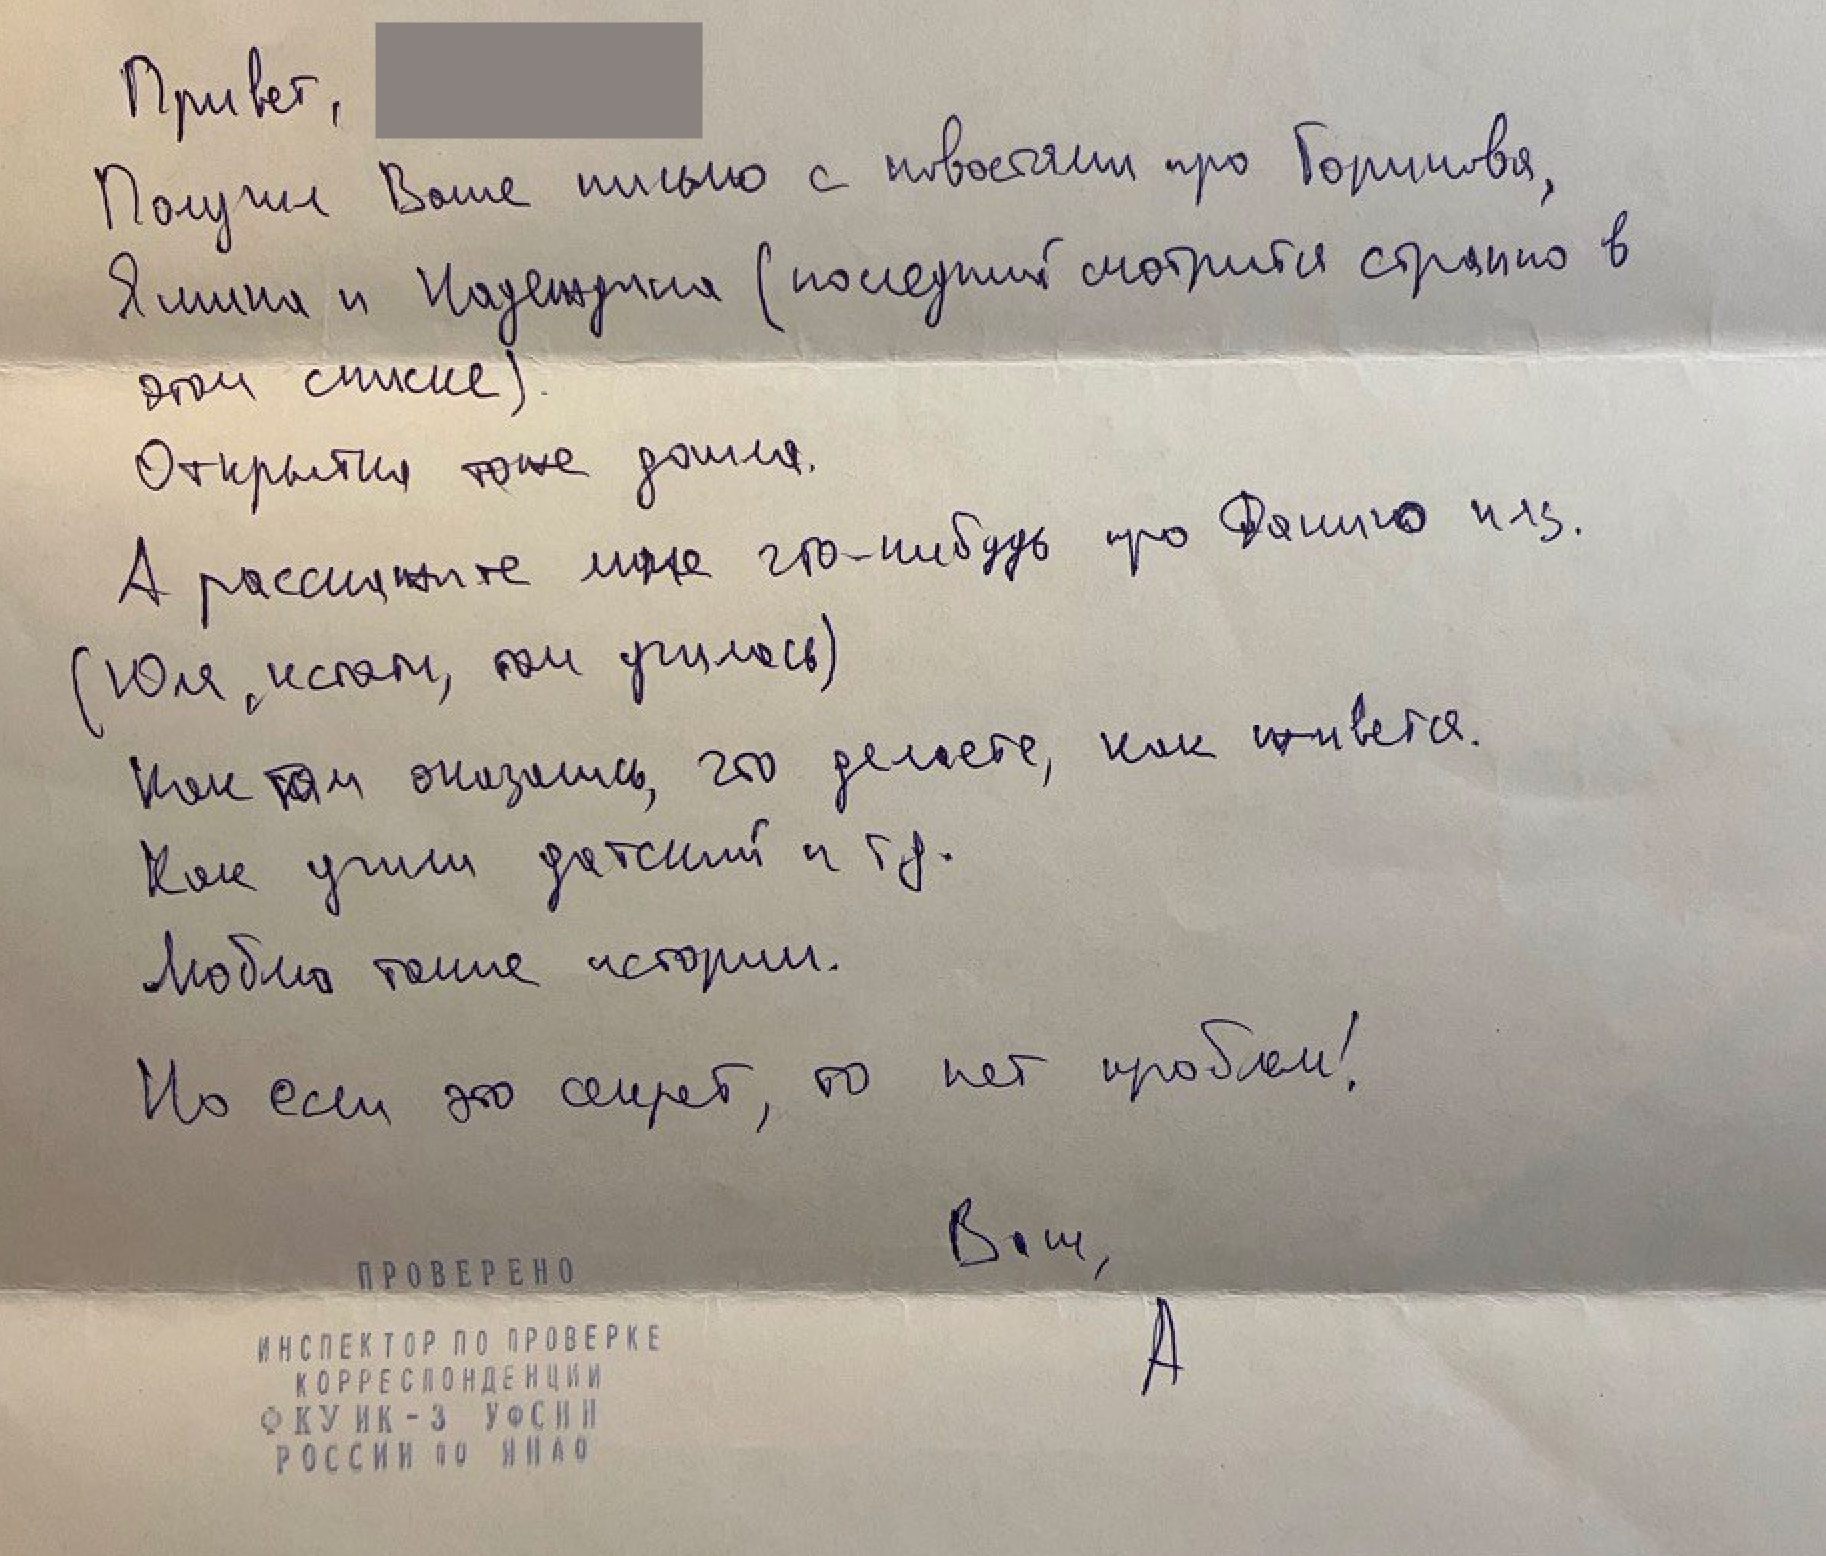 Привет,
Получил Ваше письмо с новостями про Горинова,
Яшина и Надеждина (последний смотрится странно в
этом списке).
Открытка тоже дошла.
А расскажите мне что-нибудь про Данию плз.
(Юля, кстати, там училась)
Как там оказались, что делаете, как живется.
Как учили датский и тд.
Люблю такие истории.
Но если это секрет, то нет проблем!
Ваш,
А
ПРОВЕРЕНО
ИНСПЕКТОР ПО ПРОВЕРКЕ
КОРРЕСПОНДЕНЦИИ
ФКУ ИК-3 УФСИН
РОССИИ ПО ЯНАО